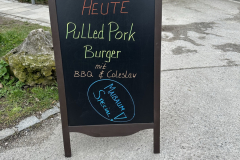 HEUTE
Pulled Pork
Burger
mit
BBQ & Coleslav
Museum
Special